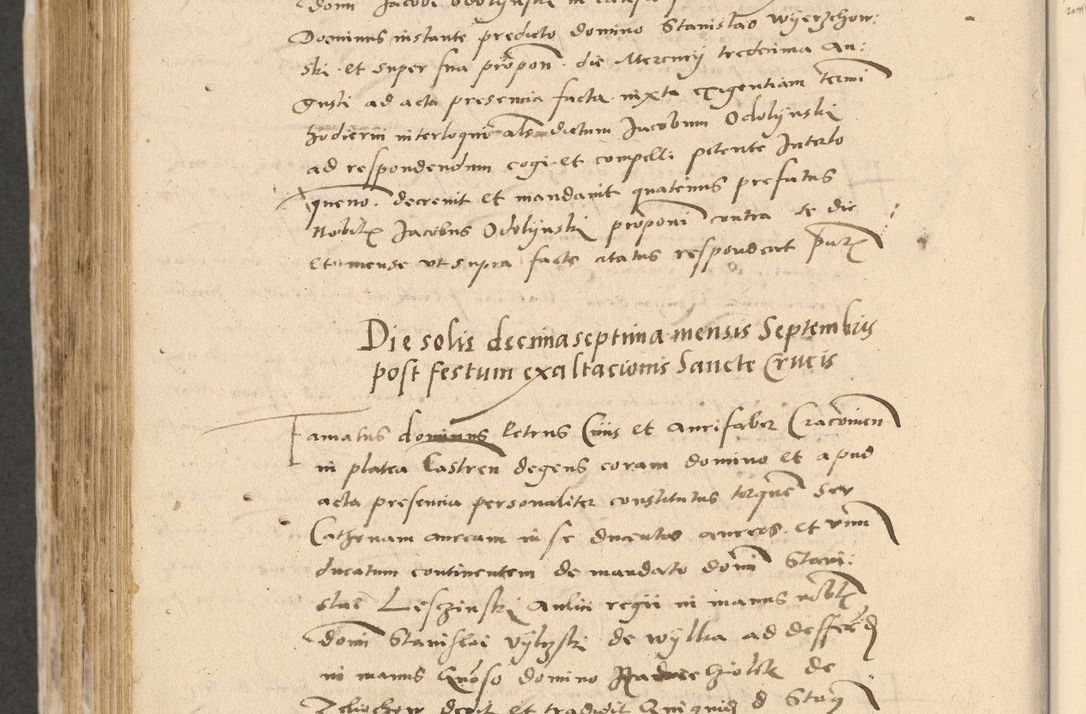 domi Jacobi Odolijnski in
Dominus instante predicto domino Stanislao Wijerzchow:
ski et super sua propon die Mercurij tredecima Au:
gusti ad acta presencia facta iuxta exigentiam termi
hodierni interloqui als dictum Jacobum Odolijnski
ad respondendum cogi et compelli petente Interlo
quendo decrevit et mandavit quatenus prefatus
Nobil Jacobus Odolijnski proponi contra se die
et mense ut supra facte citatus respondeat
Die solis decimaseptima mensis Septembris
post festum exaltacionis Sancte Crucis
Famatus dominus Petrus Civis et Aurifaber Cracovien
in platea Castren degens coram domino et apud
acta presencia personaliter constitutus torquem seu
Cathenam auream in se ducentos aureos et unum
ducatum continentem de mandato domini Stani:
slai Leszinski Aulici regii in manus nobil
domini Stanislai de Wijlka ad
in manus Gnoso domino de
dedit et tradidit